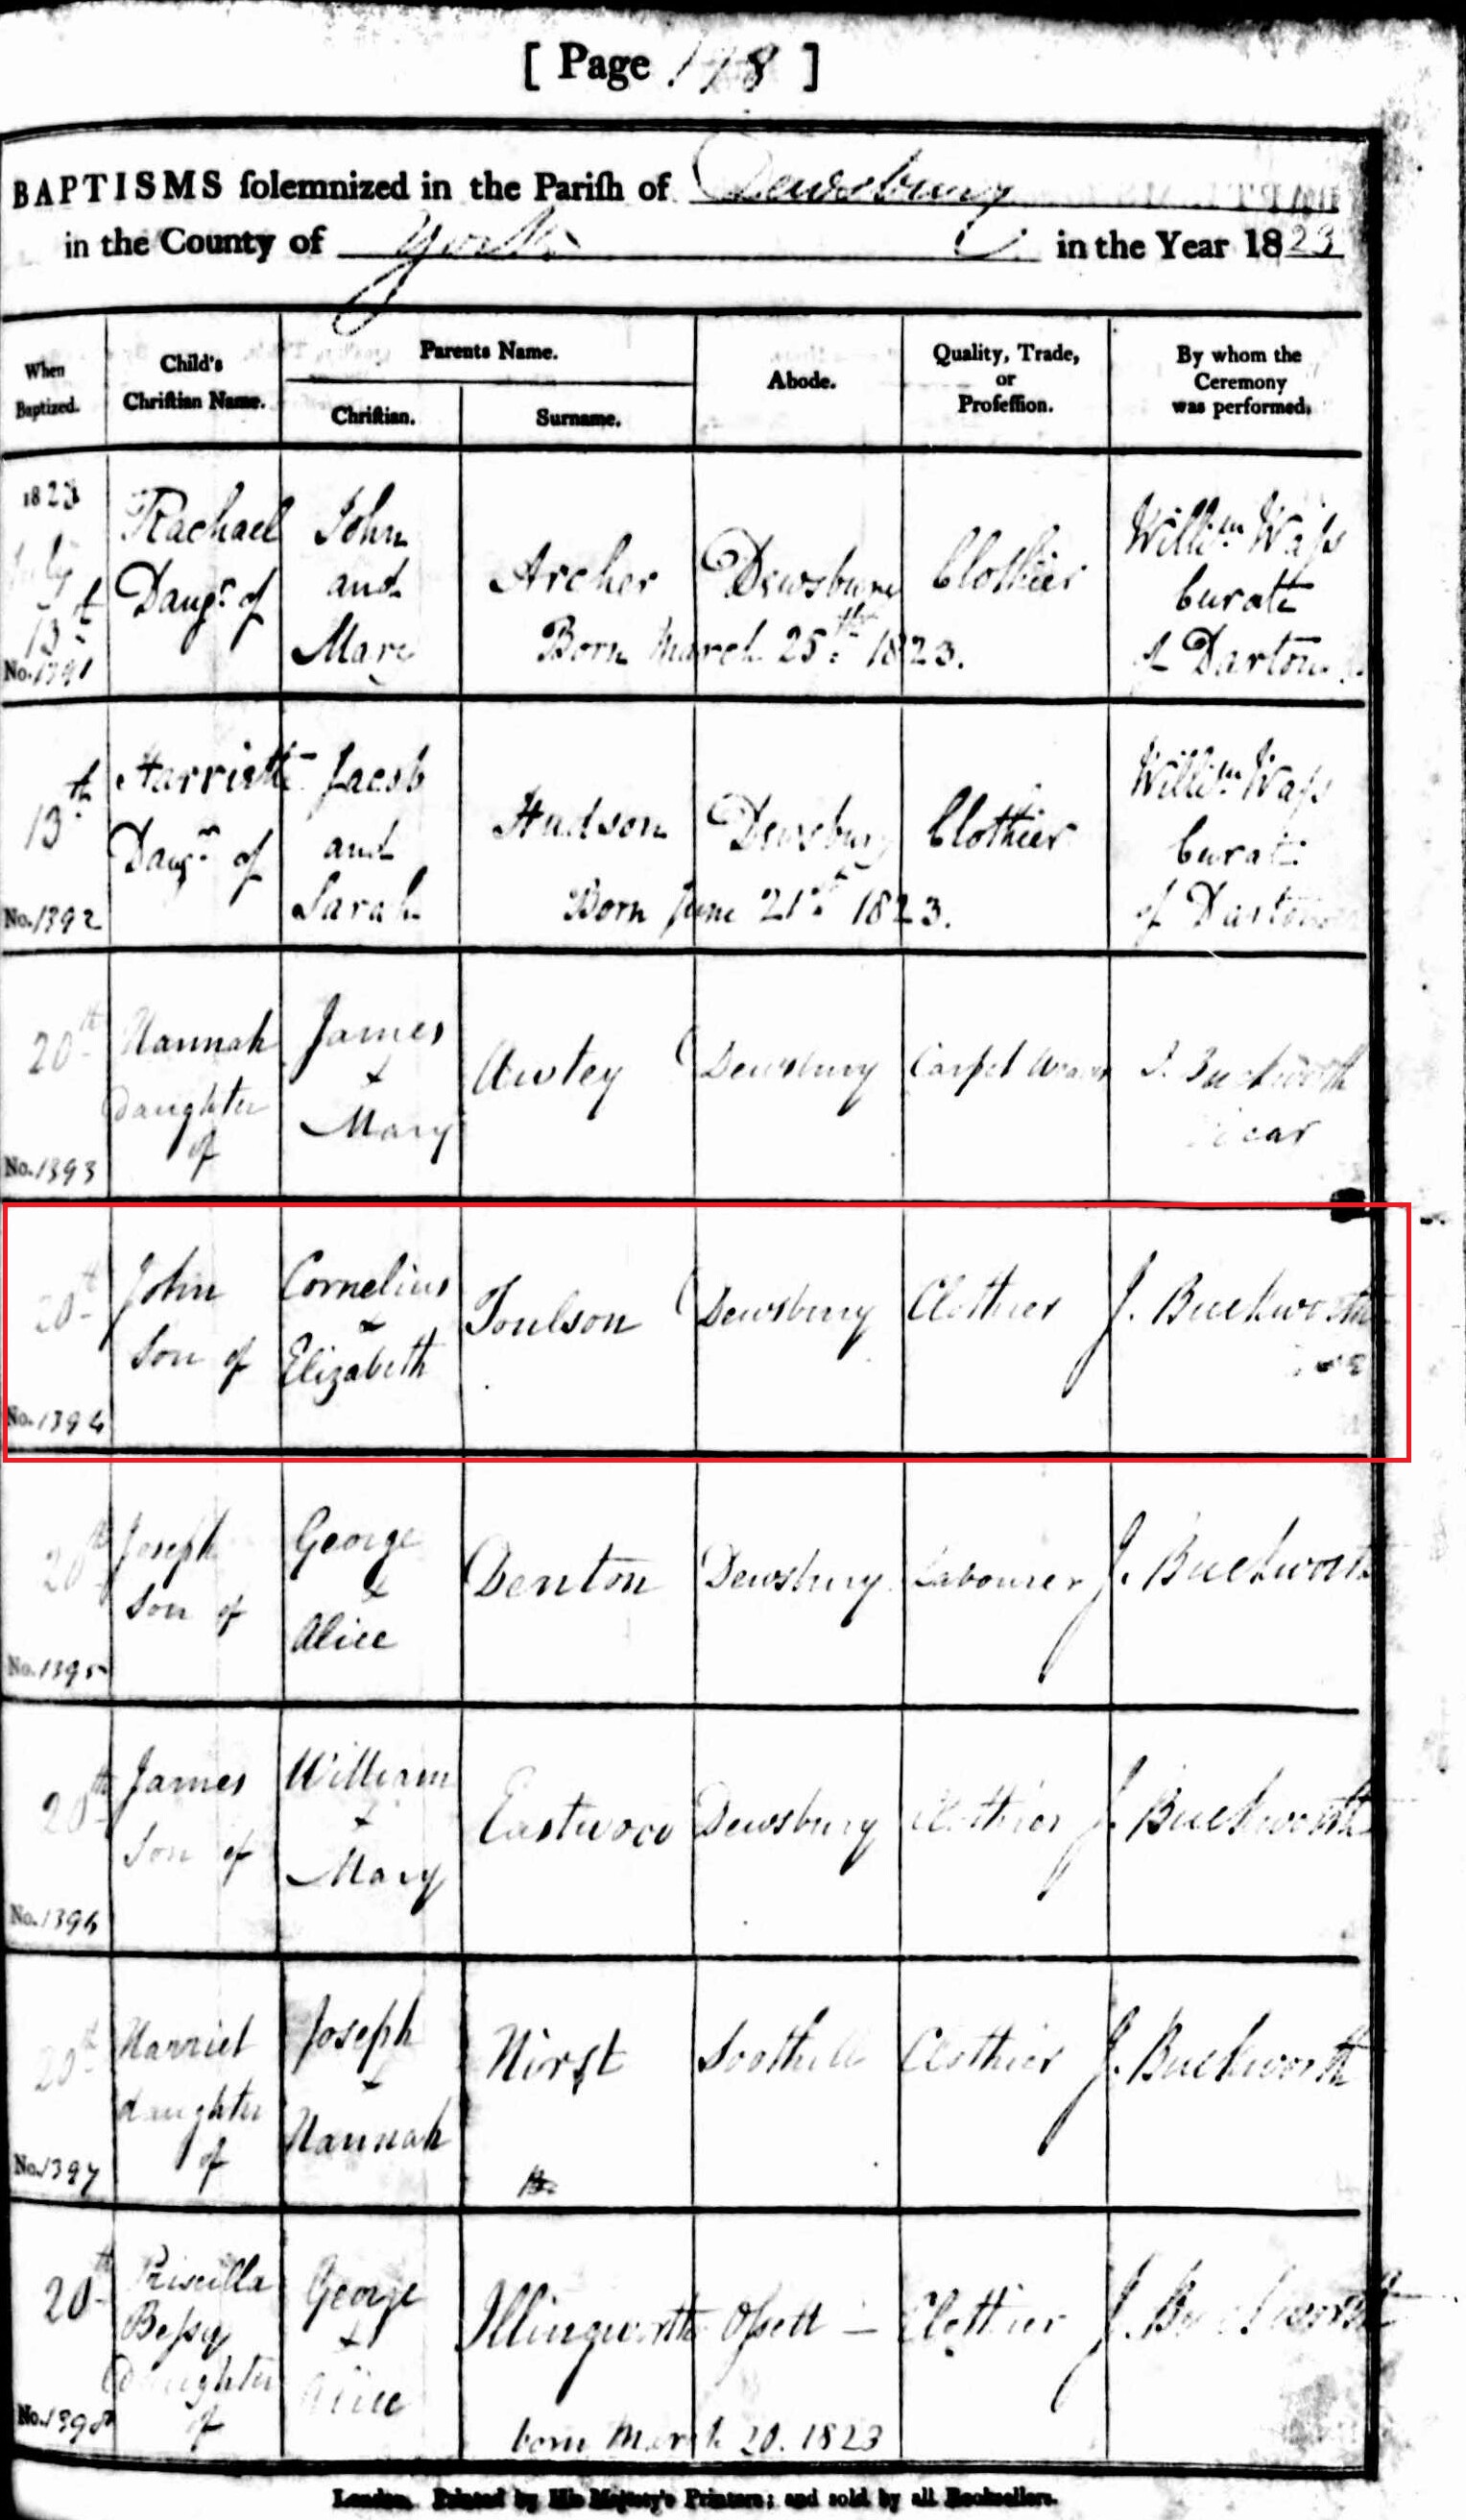 [ Page 178 ]
BAPTISMS solemnized in the Parish of Dewsbury
in the County of York in the Year 1823
When Baptized. Child's Christian Name. Parents Name. Christian. Surname. Abode. Quality, Trade, or Profession. By whom the Ceremony was performed.
1823
July
13th
No. 1391
Rachael
Daugr. of
John
and
Mary
Archer
Dewsbury
Clothier
Born March 25th 1823.
Willm. Wass
Curate
of Darton
13th
No. 1392
Harriette
Daugr. of
Jacob
and
Sarah
Hudson
Dewsbury
Clothier
Born June 21st 1823.
Willm. Wass
Curate
of Darton
20th
No. 1393
Hannah
Daughter
of
James
&
Mary
Awtey
Dewsbury
Carpet Weaver
J. Buckworth
Vicar
20th
No. 1394
John
Son of
Cornelius
&
Elizabeth
Toulson
Dewsbury
Clothier
J. Buckworth
20th
No. 1395
Joseph
Son of
George
&
Alice
Denton
Dewsbury
Labourer
J. Buckworth
20th
No. 1396
James
Son of
William
&
Mary
Eastwood
Dewsbury
Clothier
J. Buckworth
20th
No. 1397
Harriet
daughter
of
Joseph
&
Hannah
Hirst
Soothill
Clothier
J. Buckworth
20th
No. 1398
Priscilla
Bessy
Daughter
of
George
&
Alice
Illingworth
Ossett
Clothier
J. Buckworth
born March 20. 1823
London. Printed by His Majesty's Printers; and sold by all Booksellers.